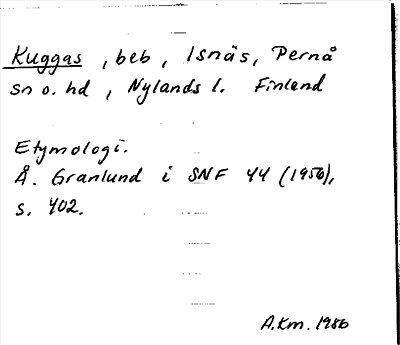 Kuggas, beb, Isnäs, Pernå
sn o. hd, Nylands l. Finland
Etymologi.
Å. Granlund i SNF 44 (1956),
s. 402.
A.Km. 1986